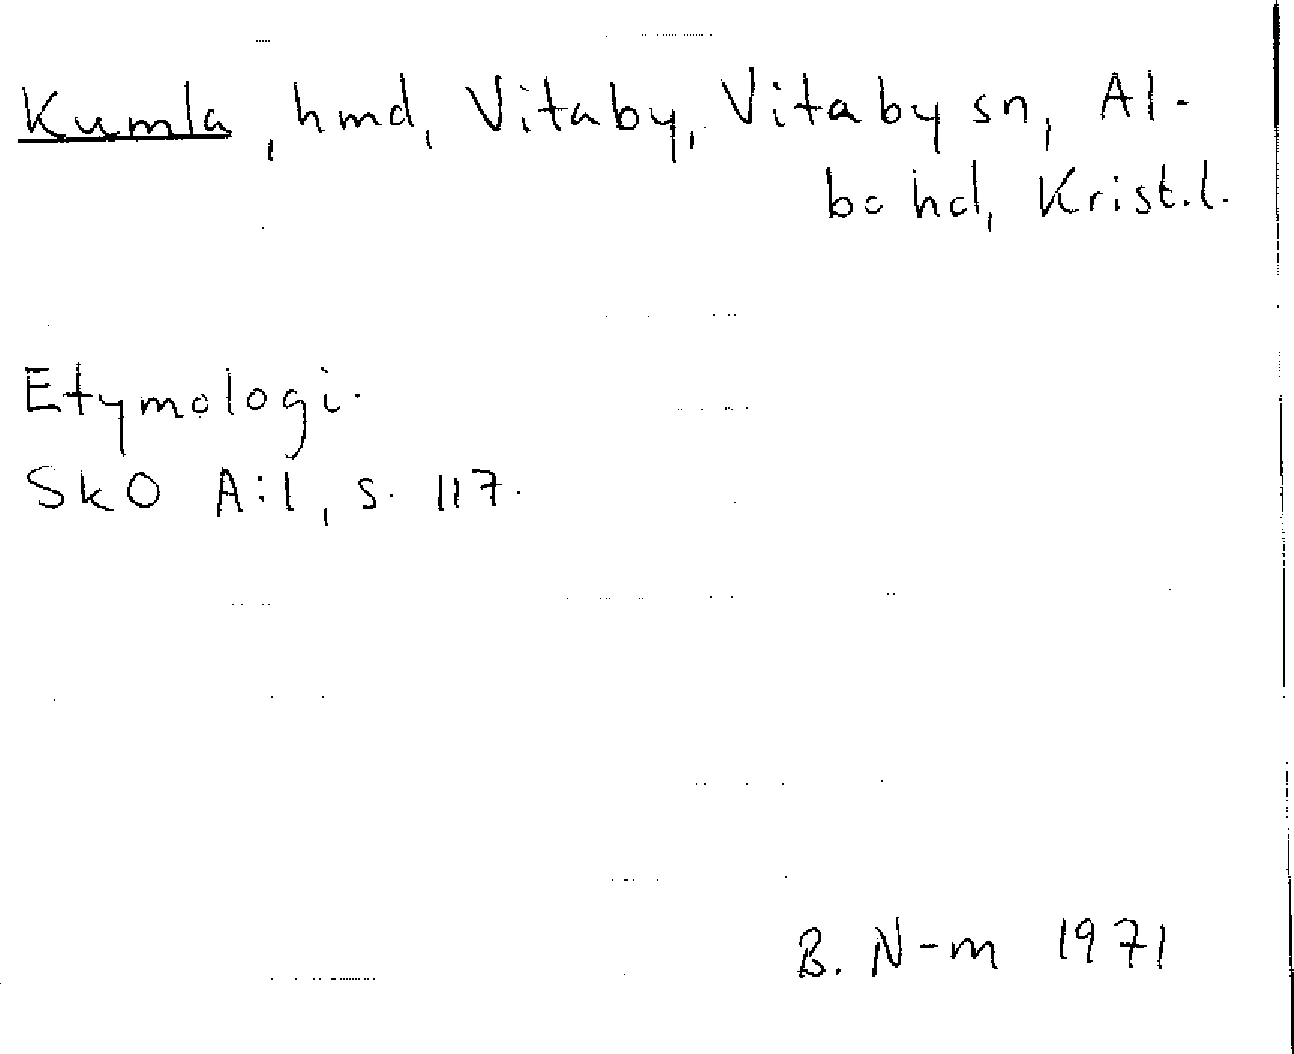 Kumla, hmd, Vitaby, Vitaby sn, Al-
bo hd, Krist.l.
Etymologi.
SkO A:1, s. 117.
B. N-m 1971